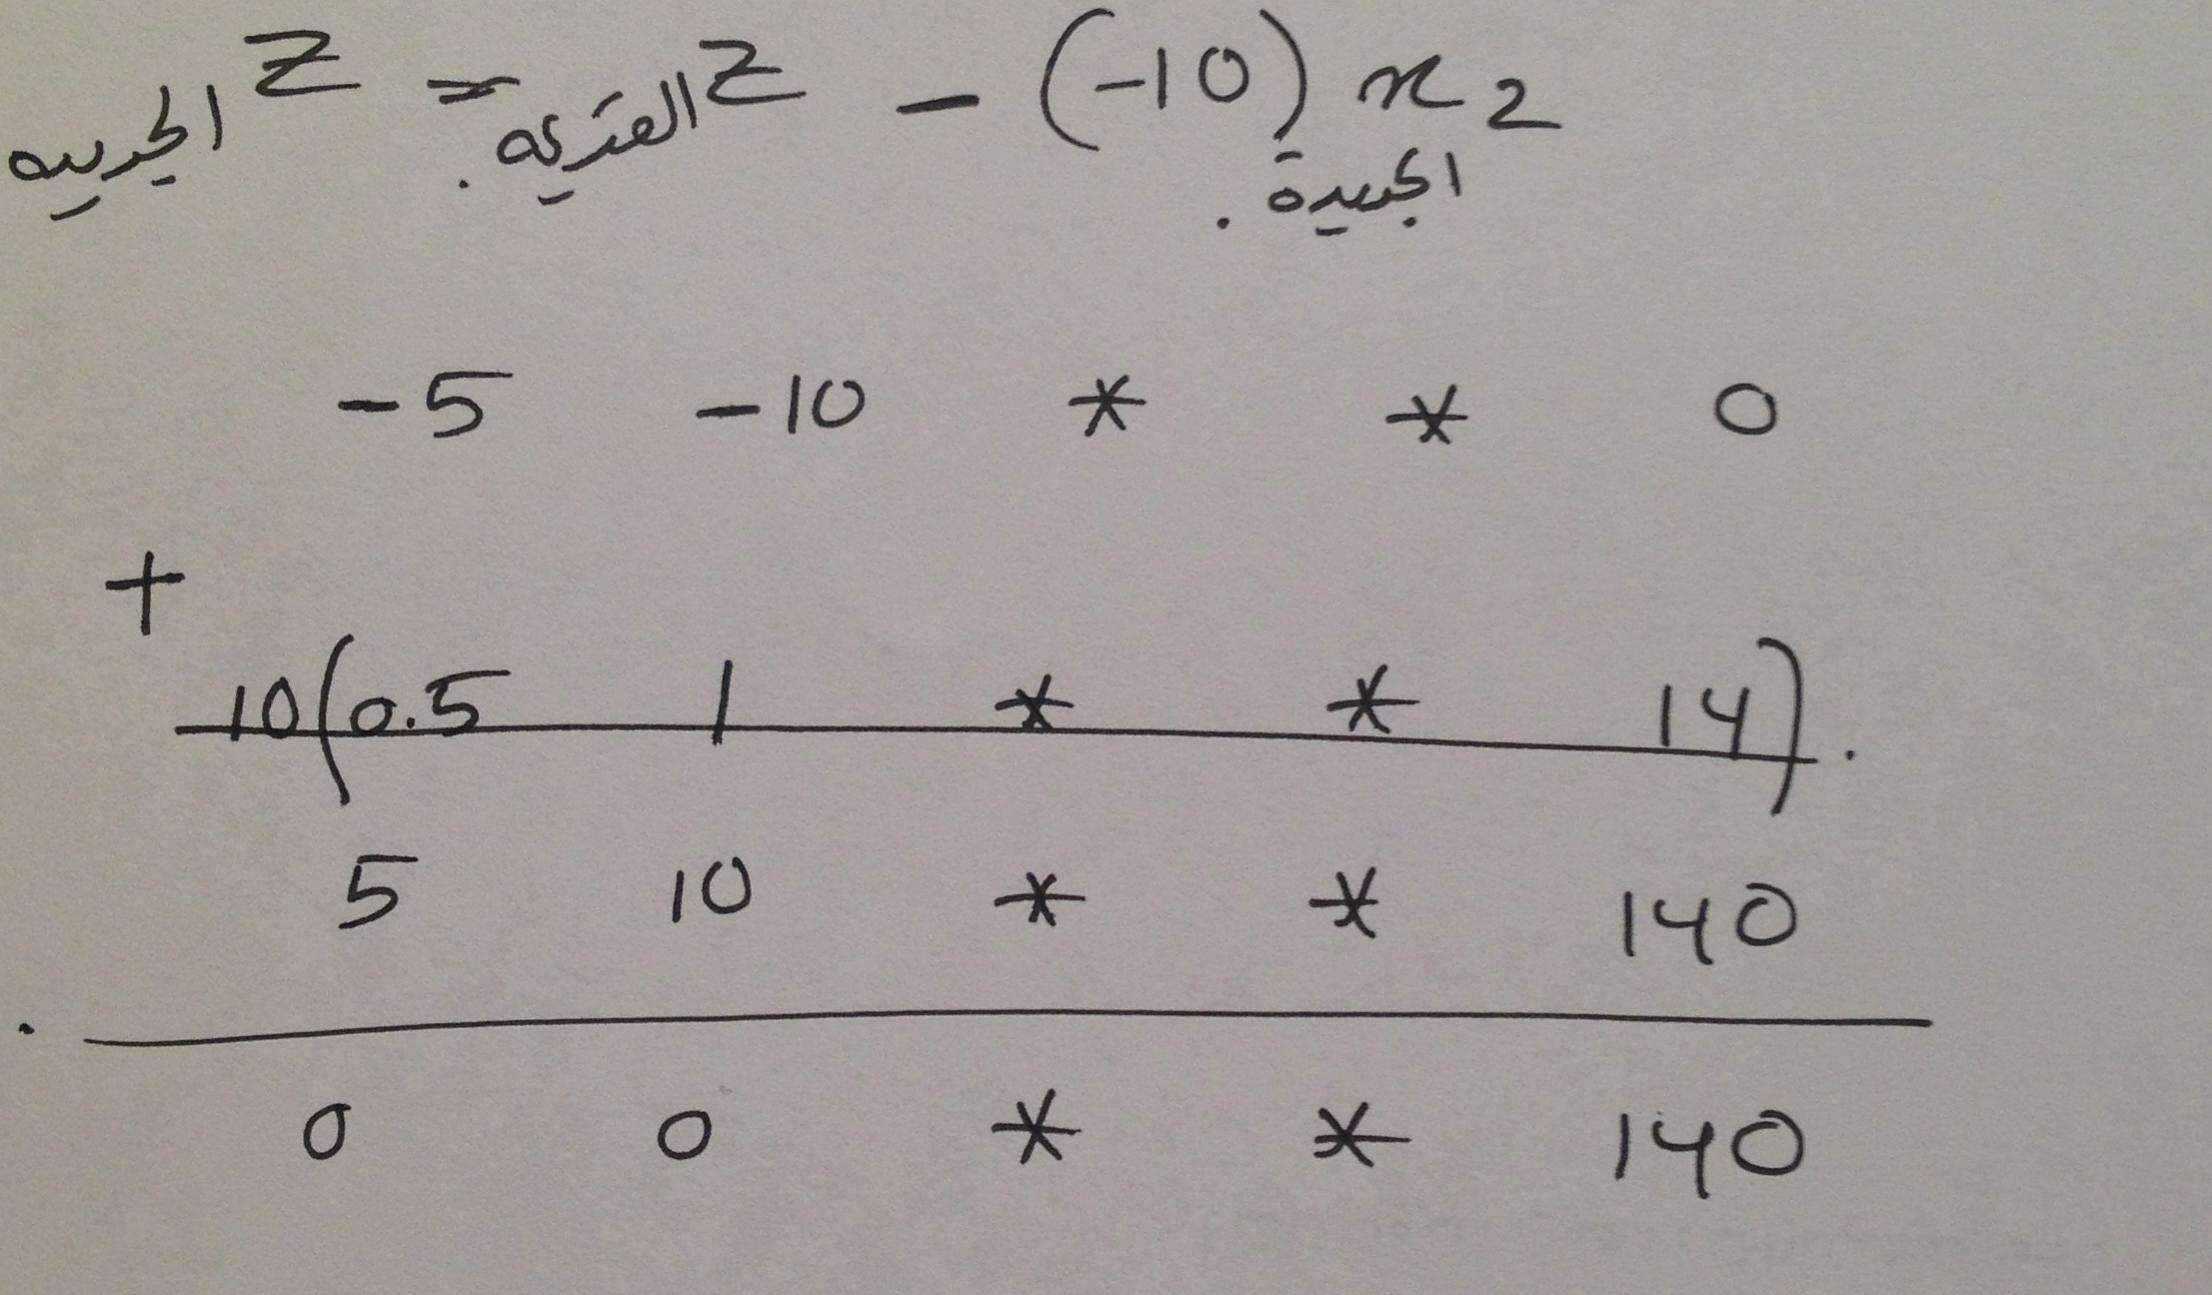 Z الجديده = Z القديمه - (-10) x2 الجديدة
-5 -10 * * 0
+
10(0.5 1 * * 14).
5 10 * * 140
0 0 * * 140